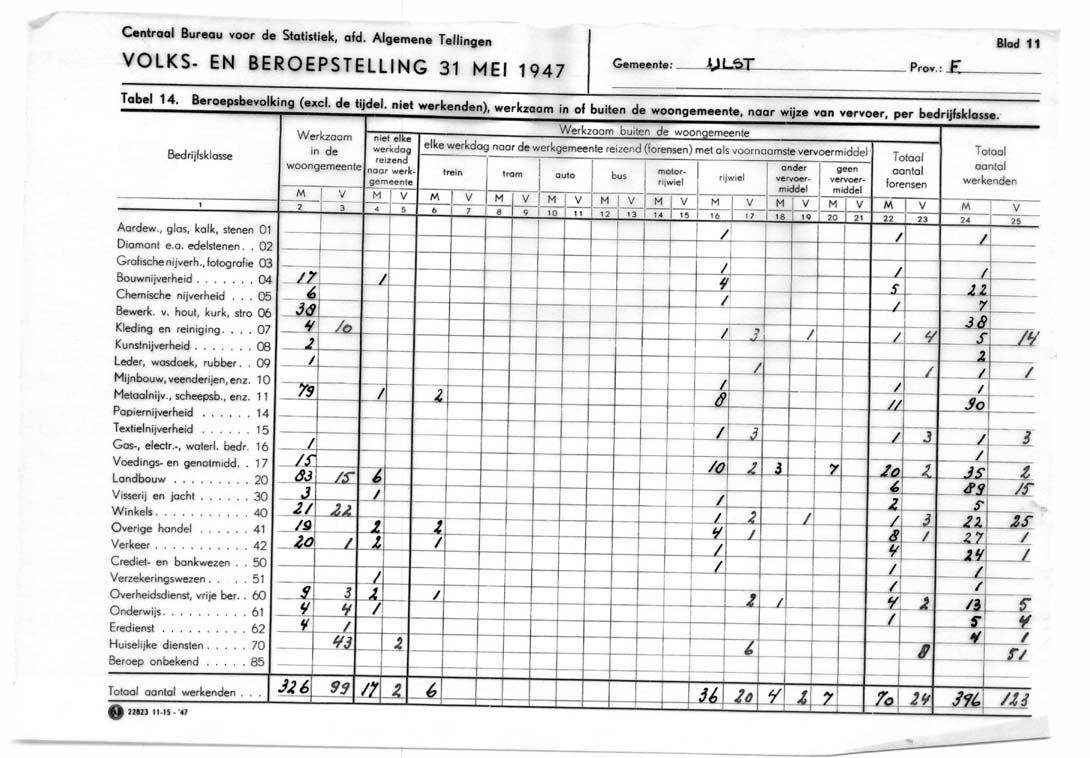 Centraal Bureau voor de Statistiek, afd. Algemene Tellingen
Blad 11
VOLKS- EN BEROEPSTELLING 31 MEI 1947
Gemeente: IJLST Prov.: F.
Tabel 14. Beroepsbevolking (excl. de tijdel. niet werkenden), werkzaam in of buiten de woongemeente, naar wijze van vervoer, per bedrijfsklasse.
Bedrijfsklasse
Werkzaam in de woongemeente
Werkzaam buiten de woongemeente
niet elke werkdag reizend naar werkgemeente
elke werkdag naar de werkgemeente reizend (forensen) met als voornaamste vervoermiddel
trein tram auto bus motorrijwiel rijwiel ander vervoermiddel geen vervoermiddel
Totaal aantal forensen
Totaal aantal werkenden
M V M V M V M V M V M V M V M V M V M V M V M V
1 2 3 4 5 6 7 8 9 10 11 12 13 14 15 16 17 18 19 20 21 22 23 24 25
Aardew., glas, kalk, stenen 01 1 1 1
Diamant e.a. edelstenen . . 02
Grafische nijverh., fotografie 03 1 1 1
Bouwnijverheid . . . . . . . 04 17 1 4 5 22
Chemische nijverheid . . . 05 6 1 1 7
Bewerk. v. hout, kurk, stro 06 38 38
Kleding en reiniging . . . . 07 4 10 1 3 1 1 4 5 14
Kunstnijverheid . . . . . . . 08 2 2
Leder, wasdoek, rubber . . 09 1 1 1 1 1
Mijnbouw, veenderijen, enz. 10 1 1 1
Metaalnijv., scheepsb., enz. 11 79 1 2 8 11 90
Papiernijverheid . . . . . . 14
Textielnijverheid . . . . . . 15 1 3 1 3 1 3
Gas-, electr.-, waterl. bedr. 16 1 1
Voedings- en genotmidd. . 17 15 10 2 3 7 20 2 35 2
Landbouw . . . . . . . . . 20 83 15 6 6 89 15
Visserij en jacht . . . . . . 30 3 1 1 2 5
Winkels . . . . . . . . . . . 40 21 22 1 2 1 1 3 22 25
Overige handel . . . . . . 41 19 2 2 4 1 8 1 27 1
Verkeer . . . . . . . . . . . 42 20 1 2 1 1 4 24 1
Crediet- en bankwezen . . 50 1 1 1
Verzekeringswezen . . . . . 51 1 1 1
Overheidsdienst, vrije ber. . 60 9 3 2 1 2 1 4 2 13 5
Onderwijs . . . . . . . . . . 61 4 4 1 1 5 4
Eredienst . . . . . . . . . . 62 4 1 4 1
Huiselijke diensten . . . . . 70 43 2 6 8 51
Beroep onbekend . . . . . 85
Totaal aantal werkenden . . . 326 99 17 2 6 36 20 4 2 7 70 24 396 123
22823 11-15 - '47